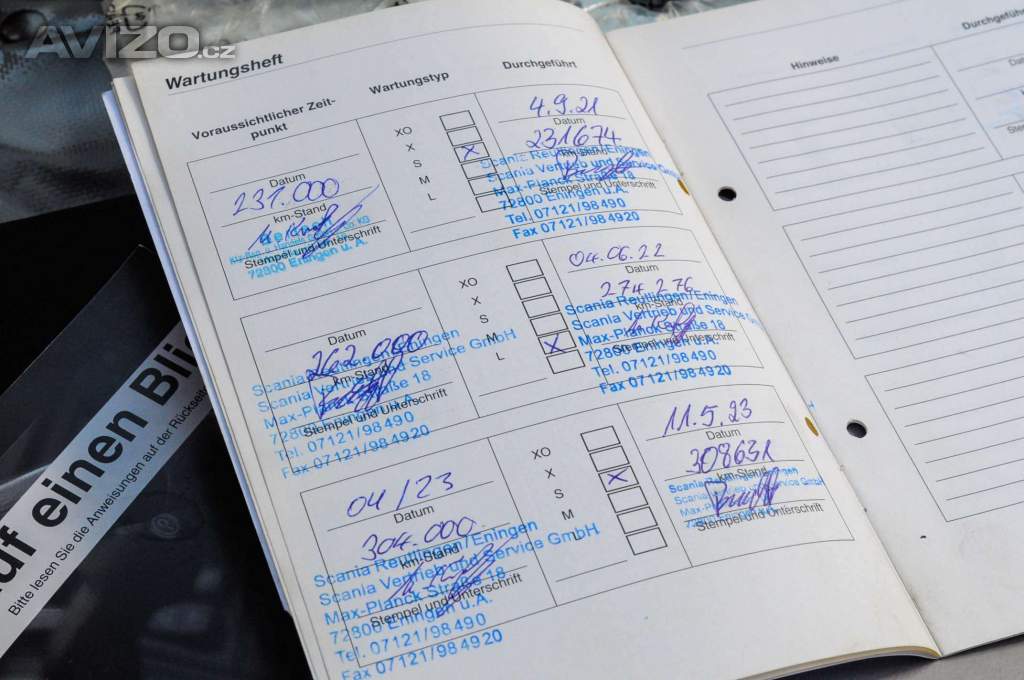 AVIZO.cz
Wartungsheft
Voraussichtlicher Zeit-
punkt
Wartungstyp
Durchgeführt
Datum
231.000
km-Stand
Stempel und Unterschrift
72800 Eningen u. A.
XO
X
S
M
L
4.9.21
Datum
231674
km-Stand
Scania Reutlingen/Eningen
Scania Vertrieb und Service GmbH
Max-Planck-Straße 18
Stempel und Unterschrift
72800 Eningen u.A.
Tel. 07121/98490
Fax 07121/984920
Datum
262.000
km-Stand
Scania Reutlingen/Eningen
Scania Vertrieb und Service GmbH
Max-Planck Straße 18
Stempel und Unterschrift
72800 Eningen u.A.
Tel. 07121/98490
Fax 07121/984920
XO
X
S
M
L
04.06.22
Datum
274 276
km-Stand
Scania Reutlingen/Eningen
Scania Vertrieb und Service GmbH
Max-Planck Straße 18
Stempel und Unterschrift
72800 Eningen u.A.
Tel. 07121/98490
Fax 07121/984920
04/23
Datum
304.000
km-Stand
Scania Reutlingen/Eningen
Scania Vertrieb und Service GmbH
Max-Planck Straße 18
Stempel und Unterschrift
72800 Eningen u.A.
Tel. 07121/98490
Fax 07121/984920
XO
X
S
M
11.5.23
Datum
308631
km-Stand
Scania Reutlingen/Eningen
Scania Vertrieb und Service GmbH
Stempel und Unterschrift
Hinweise
Durchgeführt
auf einen Bli
Bitte lesen Sie die Anweisungen auf der Rückseite